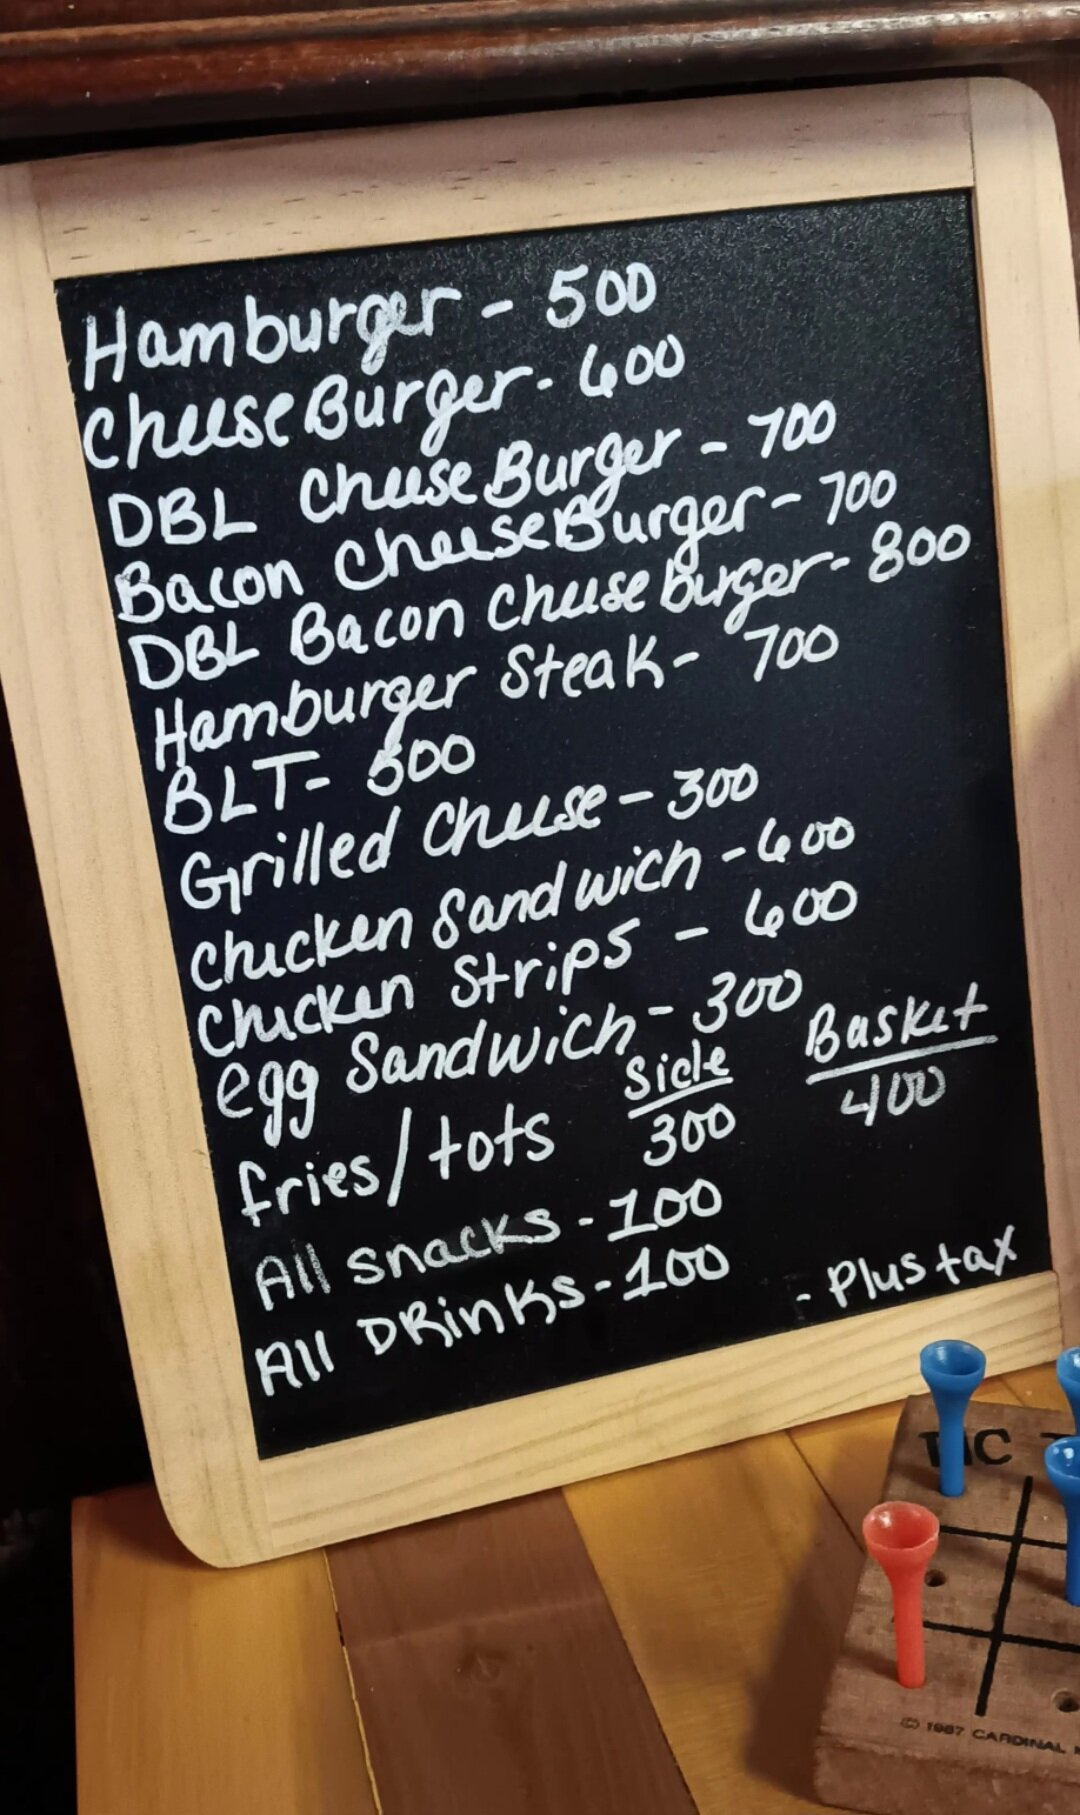 Hamburger - 500
CheeseBurger - 600
DBL CheeseBurger - 700
Bacon CheeseBurger - 700
DBL Bacon cheeseburger - 800
Hamburger Steak - 700
BLT - 500
Grilled Cheese - 300
Chicken Sandwich - 600
Chicken Strips - 600
egg Sandwich - 300
Side Basket
fries/tots 300 400
All snacks - 100
All DRinks - 100
- Plus tax
TIC
© 1987 CARDINAL